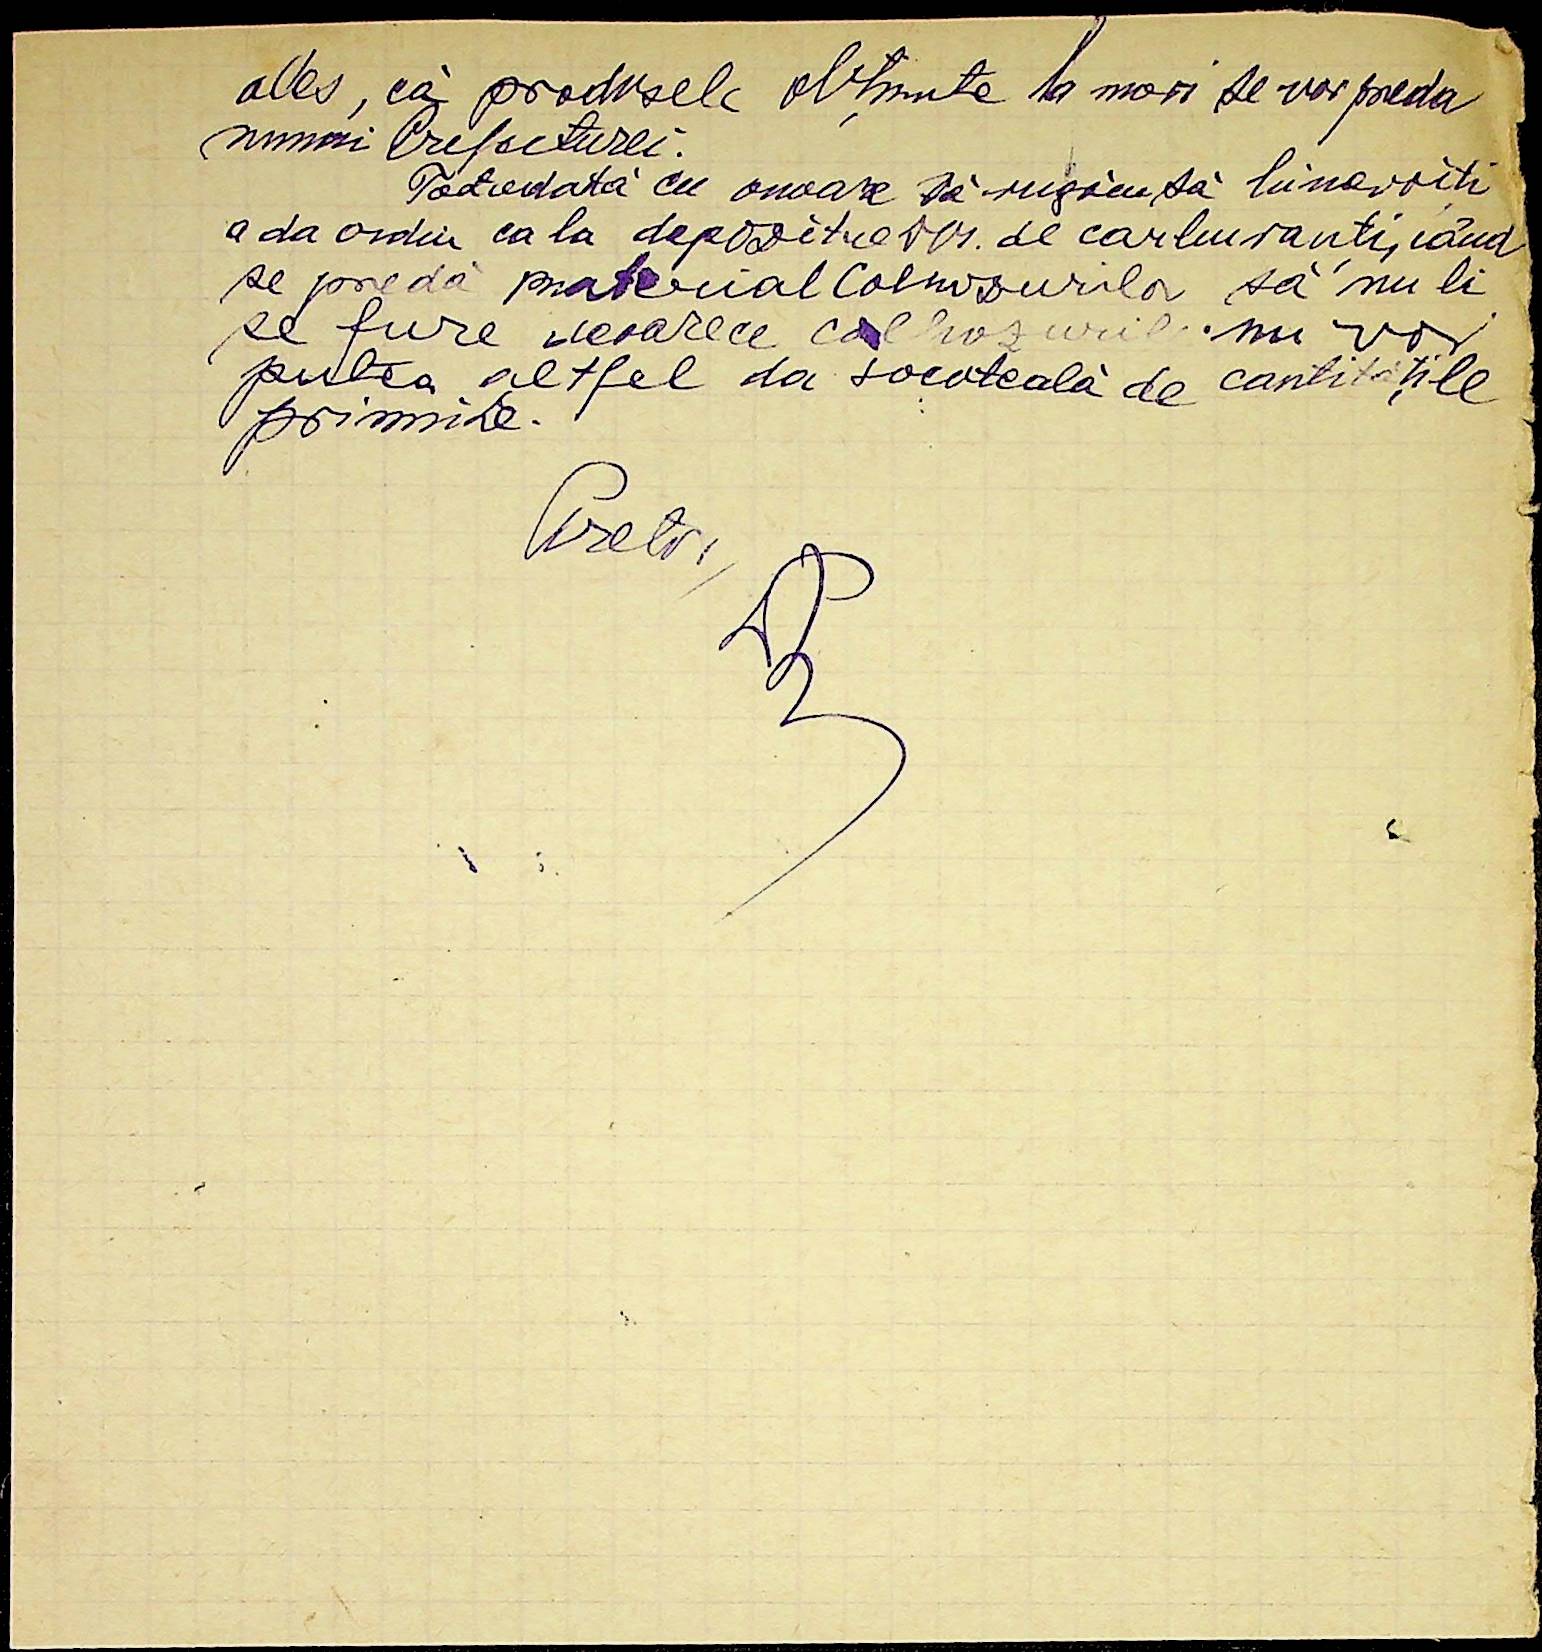 ales, că produsele obținute la mori se vor preda
numai Prefecturei.
Totodată cu onoare vă rugăm să binevoiți
a da ordin ca la depozitele de carburanți, când
se predă material Colhozurilor să nu li
se fure deoarece colhozurile nu vor
putea altfel da socoteală de cantitățile
primite.
Pretor,